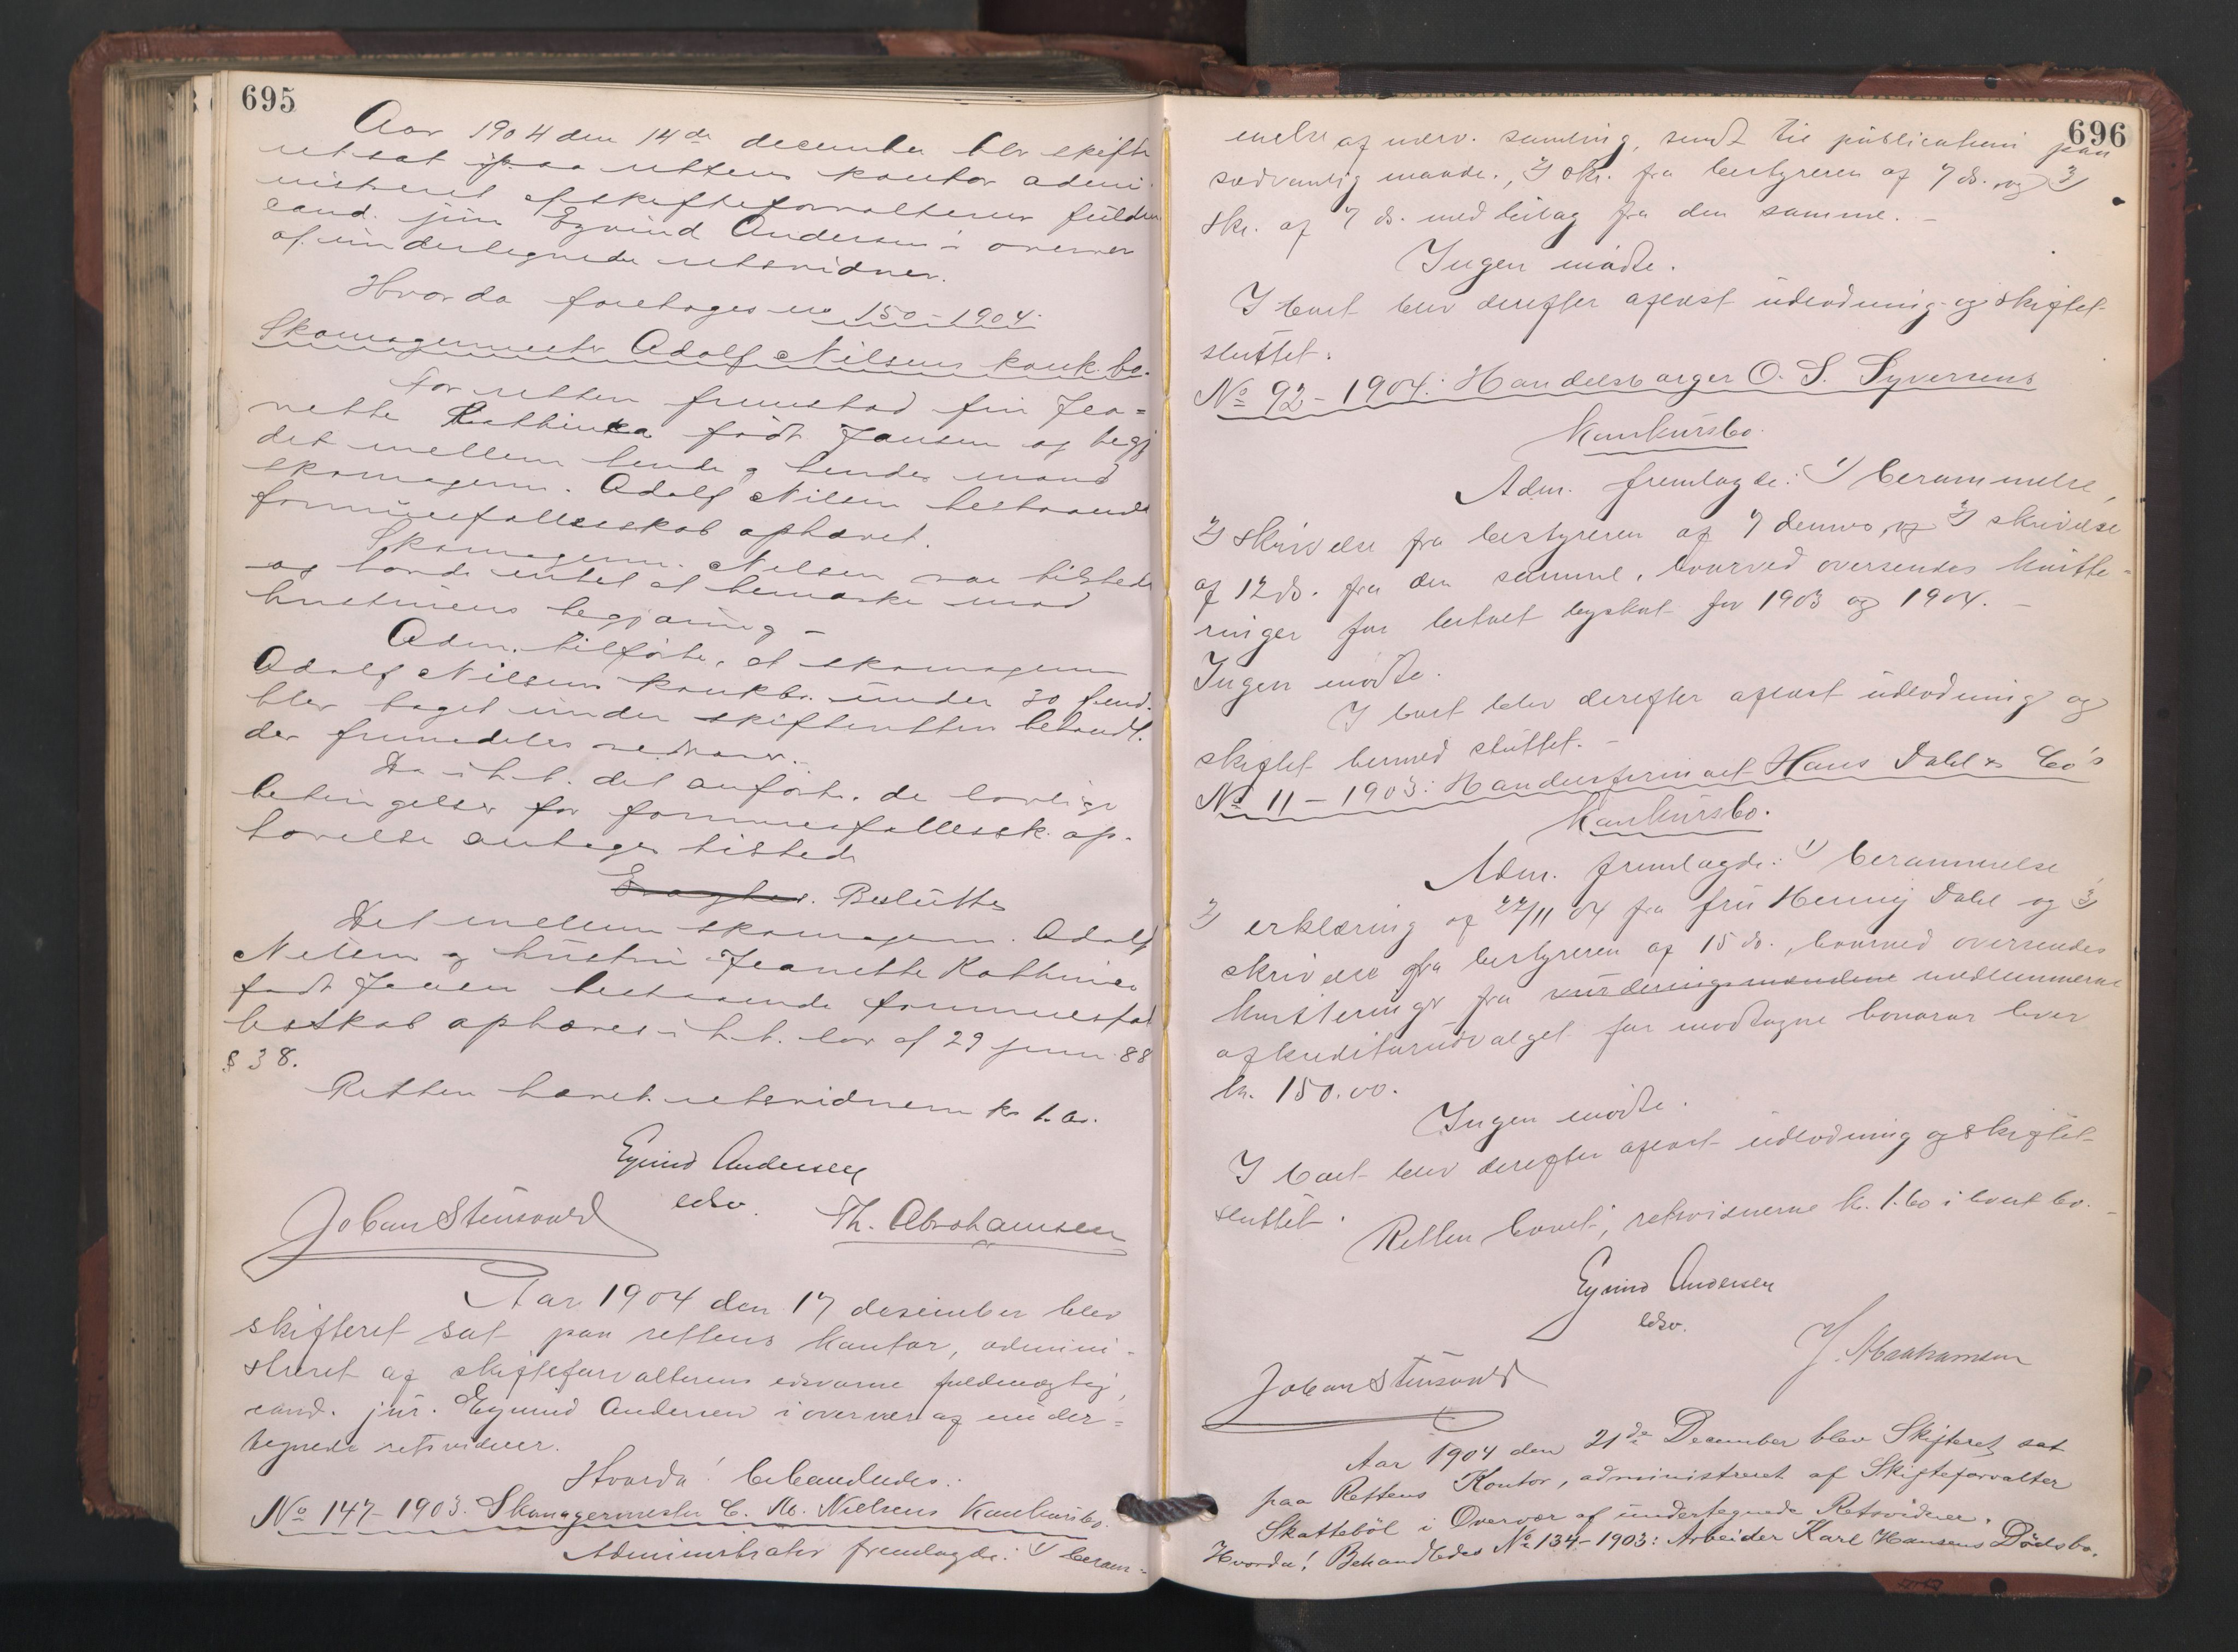 695
Aar 1904 den 14de december blev skifte
ret sat paa rettens kontor admi-
nistreret af skifteforvalterens fuldm
cand. jur Eyvind Andersen i overvær
af undertegnede retsvidner.
Hvorda foretoges no 150 - 1904:
Skomagermester Adolf Nilsens konk.bo.
For retten fremstod fru Jea=
nette Kathinka født Jansen og begj
det mellem hende og hendes mand
skomagerm. Adolf Nilsen bestaaende
formuesfællesskab ophævet.
Skomagerm. Nilsen var tilstede
og havde intet at bemærke mod
hustruens begjæring -
Adm. tilførte, at skomagerm
Adolf Nilsens konkbo. under 30 f.md.
blev taget under skifterettens behandl.
der fremdeles vedvarer.-
Da i h.t. det anførte. de lovlige
betingelser for formuesfællessk. op-
hævelse antages tilstede
Eragtes. Besluttes
Det mellem skomagerm. Adolf
Nilsen og hustru Jeanette Kathinka
født Jansen bestaaende formuesfæl
lesskab ophæves i h.t. lov af 29 juni 88
§ 38.
Retten hævet. retsvidnerne kr
Eyvind Andersen
edsv.
Johan Stensvold
Th. Abrahamsen
Aar 1904 den 17 desember blev
skifteret sat paa rettens kontor, admini-
streret af skifteforvalterens edsvorne fuldmægtig,
cand. jur. Eyvind Andersen i overvær af under=
tegnede retsvidner.
Hvorda! behandledes:
No 147 - 1903. Skomagermester C. M. Nielsens Konkursbo.
Administrator fremlagde: 1) beram=
696
melse af samling, sendt til publication paa
sædvanlig maade., 2) skr. fra bestyreren af 7 ds. og 3)
skr. af 7 ds. med bilag fra den samme. -
Ingen mødte.
I boet blev derefter aflæst udlodning og skiftet
sluttet.
No 92 - 1904: Handelsborger O. S. Syversens
Konkursbo.
Adm. fremlagde: 1) berammelse,
2) skrivelse fra bestyreren af 7 dennes, og 3) skrivelse
af 12 ds. fra den samme, hvorved oversendes kvitte=
ringer for betalt byskat for 1903 og 1904. -
Ingen mødte.
I boet blev derefter aflæst udlodning og
skiftet hermed sluttet. -
No 11 - 1903: Handelsfirmaet Hans Dahl & Co's
Konkursbo.
Adm. fremlagde: 1) berammelse,
2) erklæring af 22/11 04 fra fru Henny Dahl og 3)
skrivelse fra bestyreren af 15 ds., hvorved oversendes
kvitteringer fra vurderingsmændene medlemmerne
af kreditorudvalget for modtagne honorar hver
kr. 150.00.
Ingen mødte.
I boet blev derefter aflæst udlodning og skiftet
sluttet.
Retten hævet, retsvidnerne kr. 1.60 i hvert bo. -
Eyvind Andersen
edsv.
Johan Stensvold
Abrahamsen
Aar 1904 den 21de December blev Skifteret sat
paa Rettens Kontor, administreret af Skifteforvalter
Skattebøl i Overvær af undertegnede Retsvidner.
Hvorda! Behandledes No 134 - 1903: Arbeider Karl Hansens Dødsbo.